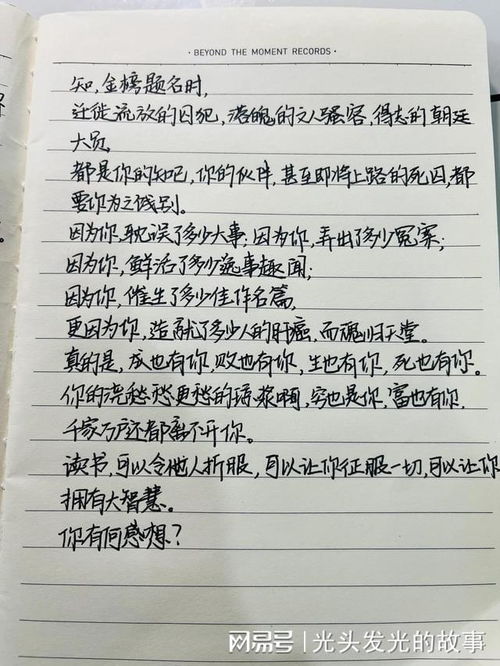 · BEYOND THE MOMENT RECORDS ·
知,金榜题名时,
迁徙流放的囚犯,落魄的文人骚客,得志的朝廷
大员,
都是你的知己,你的伙伴,甚至即将上路的死囚,都
要你为之饯别。
因为你,耽误了多少大事;因为你,弄出了多少冤案;
因为你,鲜活了多少逸事趣闻;
因为你,催生了多少佳作名篇,
更因为你,造就了多少人的肝癌,而魂归天堂。
真的是,成也有你,败也有你,生也有你,死也有你。
你的浇愁愁更愁的琼浆啊,穷也是你,富也有你,
千家万户还都离不开你。
读书,可以令他人折服,可以让你征服一切,可以让你
拥有大智慧。
你有何感想?
网易号 光头发光的故事